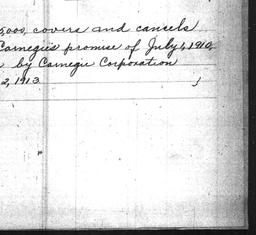 5,000, covers and cancels
Carnegie's promise of July 1, 1910,
by Carnegie Corporation
2, 1913.